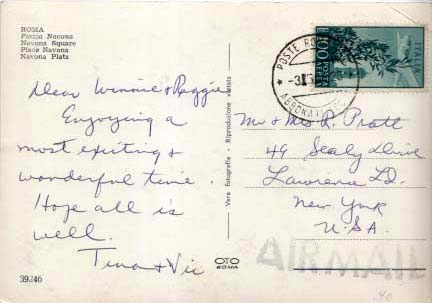 ROMA
Piazza Navona
Navona Square
Place Navona
Navona Platz
Dear Winnie & Reggie
Enjoying a
most exciting &
wonderful time.
Hope all is
well.
Tina & Vic
39246
Vera fotografia - Riproduzione vietata
OTO
ROMA
POSTE RO
ITALIA
L. 100
Mr & Mrs R. Pratt
49 Sealy Drive
Lawrence LI.
New York
U.S.A.
AIR MAIL